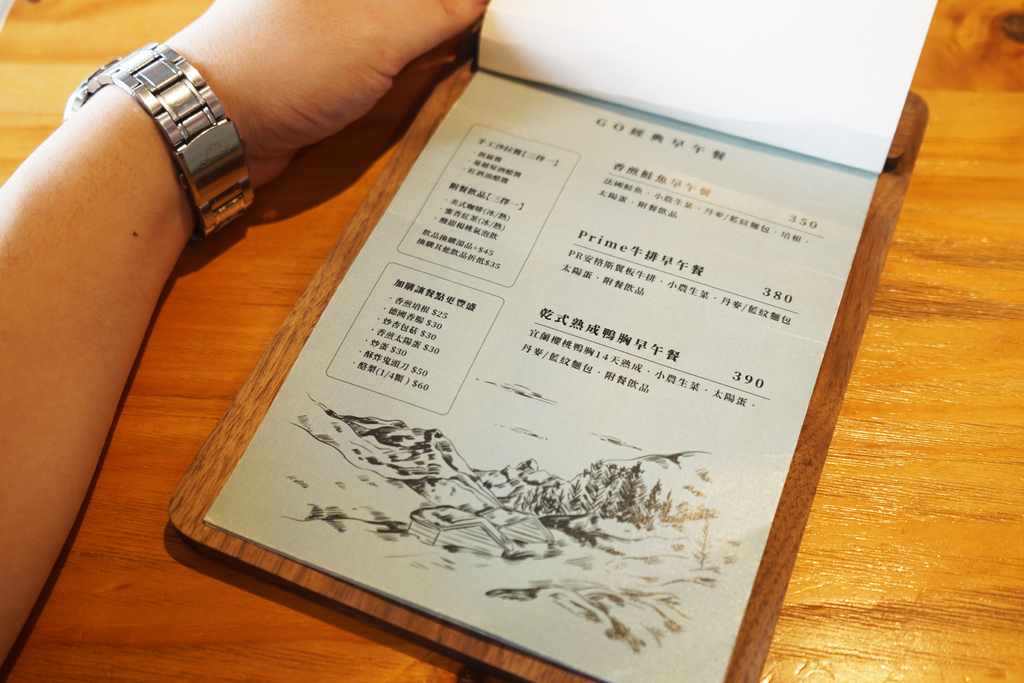 GO經典早午餐
手工沙拉醬【三擇一】
紅酒油醋醬
附餐飲品【三擇一】
· 美式咖啡(冰/熱)
· 蜜香紅茶(冰/熱)
· 酸甜楊桃氣泡飲
飲品換購湯品+$45
換購其他飲品折抵$35
加購讓餐點更豐盛
· 香煎培根 $25
· 德國香腸 $30
· 炒杏包菇 $30
· 香煎太陽蛋 $30
· 炒蛋 $30
· 酥炸鬼頭刀 $50
· 酪梨(1/4顆) $60
香煎鮭魚早午餐
350
法國鮭魚 · 小農生菜 · 丹麥/藍紋麵包 · 培根 ·
太陽蛋 · 附餐飲品
Prime牛排早午餐
380
PR安格斯翼板牛排 · 小農生菜 · 丹麥/藍紋麵包
太陽蛋 · 附餐飲品
乾式熟成鴨胸早午餐
390
宜蘭櫻桃鴨胸14天熟成 · 小農生菜 · 太陽蛋 ·
丹麥/藍紋麵包 · 附餐飲品